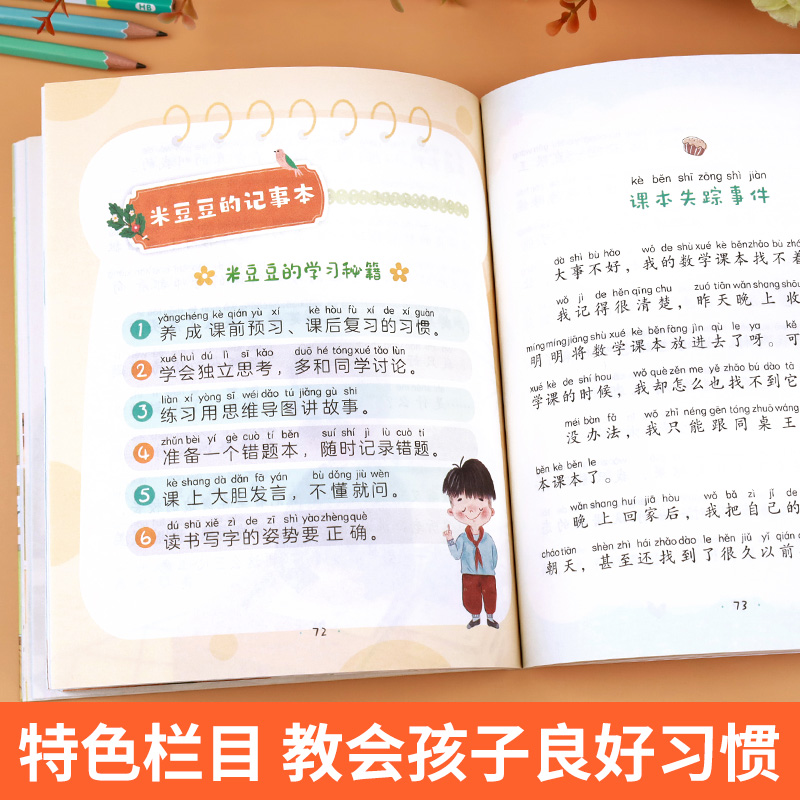 HB
米豆豆的记事本
米豆豆的学习秘籍
yǎngchéng kè qián yù xí kè hòu fù xí de xí guàn
1 养成课前预习、课后复习的习惯。
xué huì dú lì sī kǎo duō hé tóng xué tǎo lùn
2 学会独立思考，多和同学讨论。
liàn xí yòng sī wéi dǎo tú jiǎng gù shi
3 练习用思维导图讲故事。
zhǔn bèi yí gè cuò tí běn suí shí jì lù cuò tí
4 准备一个错题本，随时记录错题。
kè shang dà dǎn fā yán bù dǒng jiù wèn
5 课上大胆发言，不懂就问。
dú shū xiě zì de zī shì yào zhèng què
6 读书写字的姿势要正确。
72
kè běn shī zōng shì jiàn
课本失踪事件
dà shì bù hǎo wǒ de shù xué kè běn zhǎo bù zháo
大事不好，我的数学课本找不着
wǒ jì de hěn qīng chu zuó tiān wǎn shang shōu
我记得很清楚，昨天晚上收
míng míng jiāng shù xué kè běn fàng jìn qù le ya kě
明明将数学课本放进去了呀。可
xué kè de shí hou wǒ què zěn me yě zhǎo bú dào tā
学课的时候，我却怎么也找不到它
méi bàn fǎ wǒ zhǐ néng gēn tóng zhuō wáng
没办法，我只能跟同桌王
běn kè běn le
本课本了。
wǎn shang huí jiā hòu wǒ bǎ zì jǐ de
晚上回家后，我把自己的
cháo tiān shèn zhì hái zhǎo dào le hěn jiǔ yǐ qián
朝天，甚至还找到了很久以前
73
特色栏目 教会孩子良好习惯